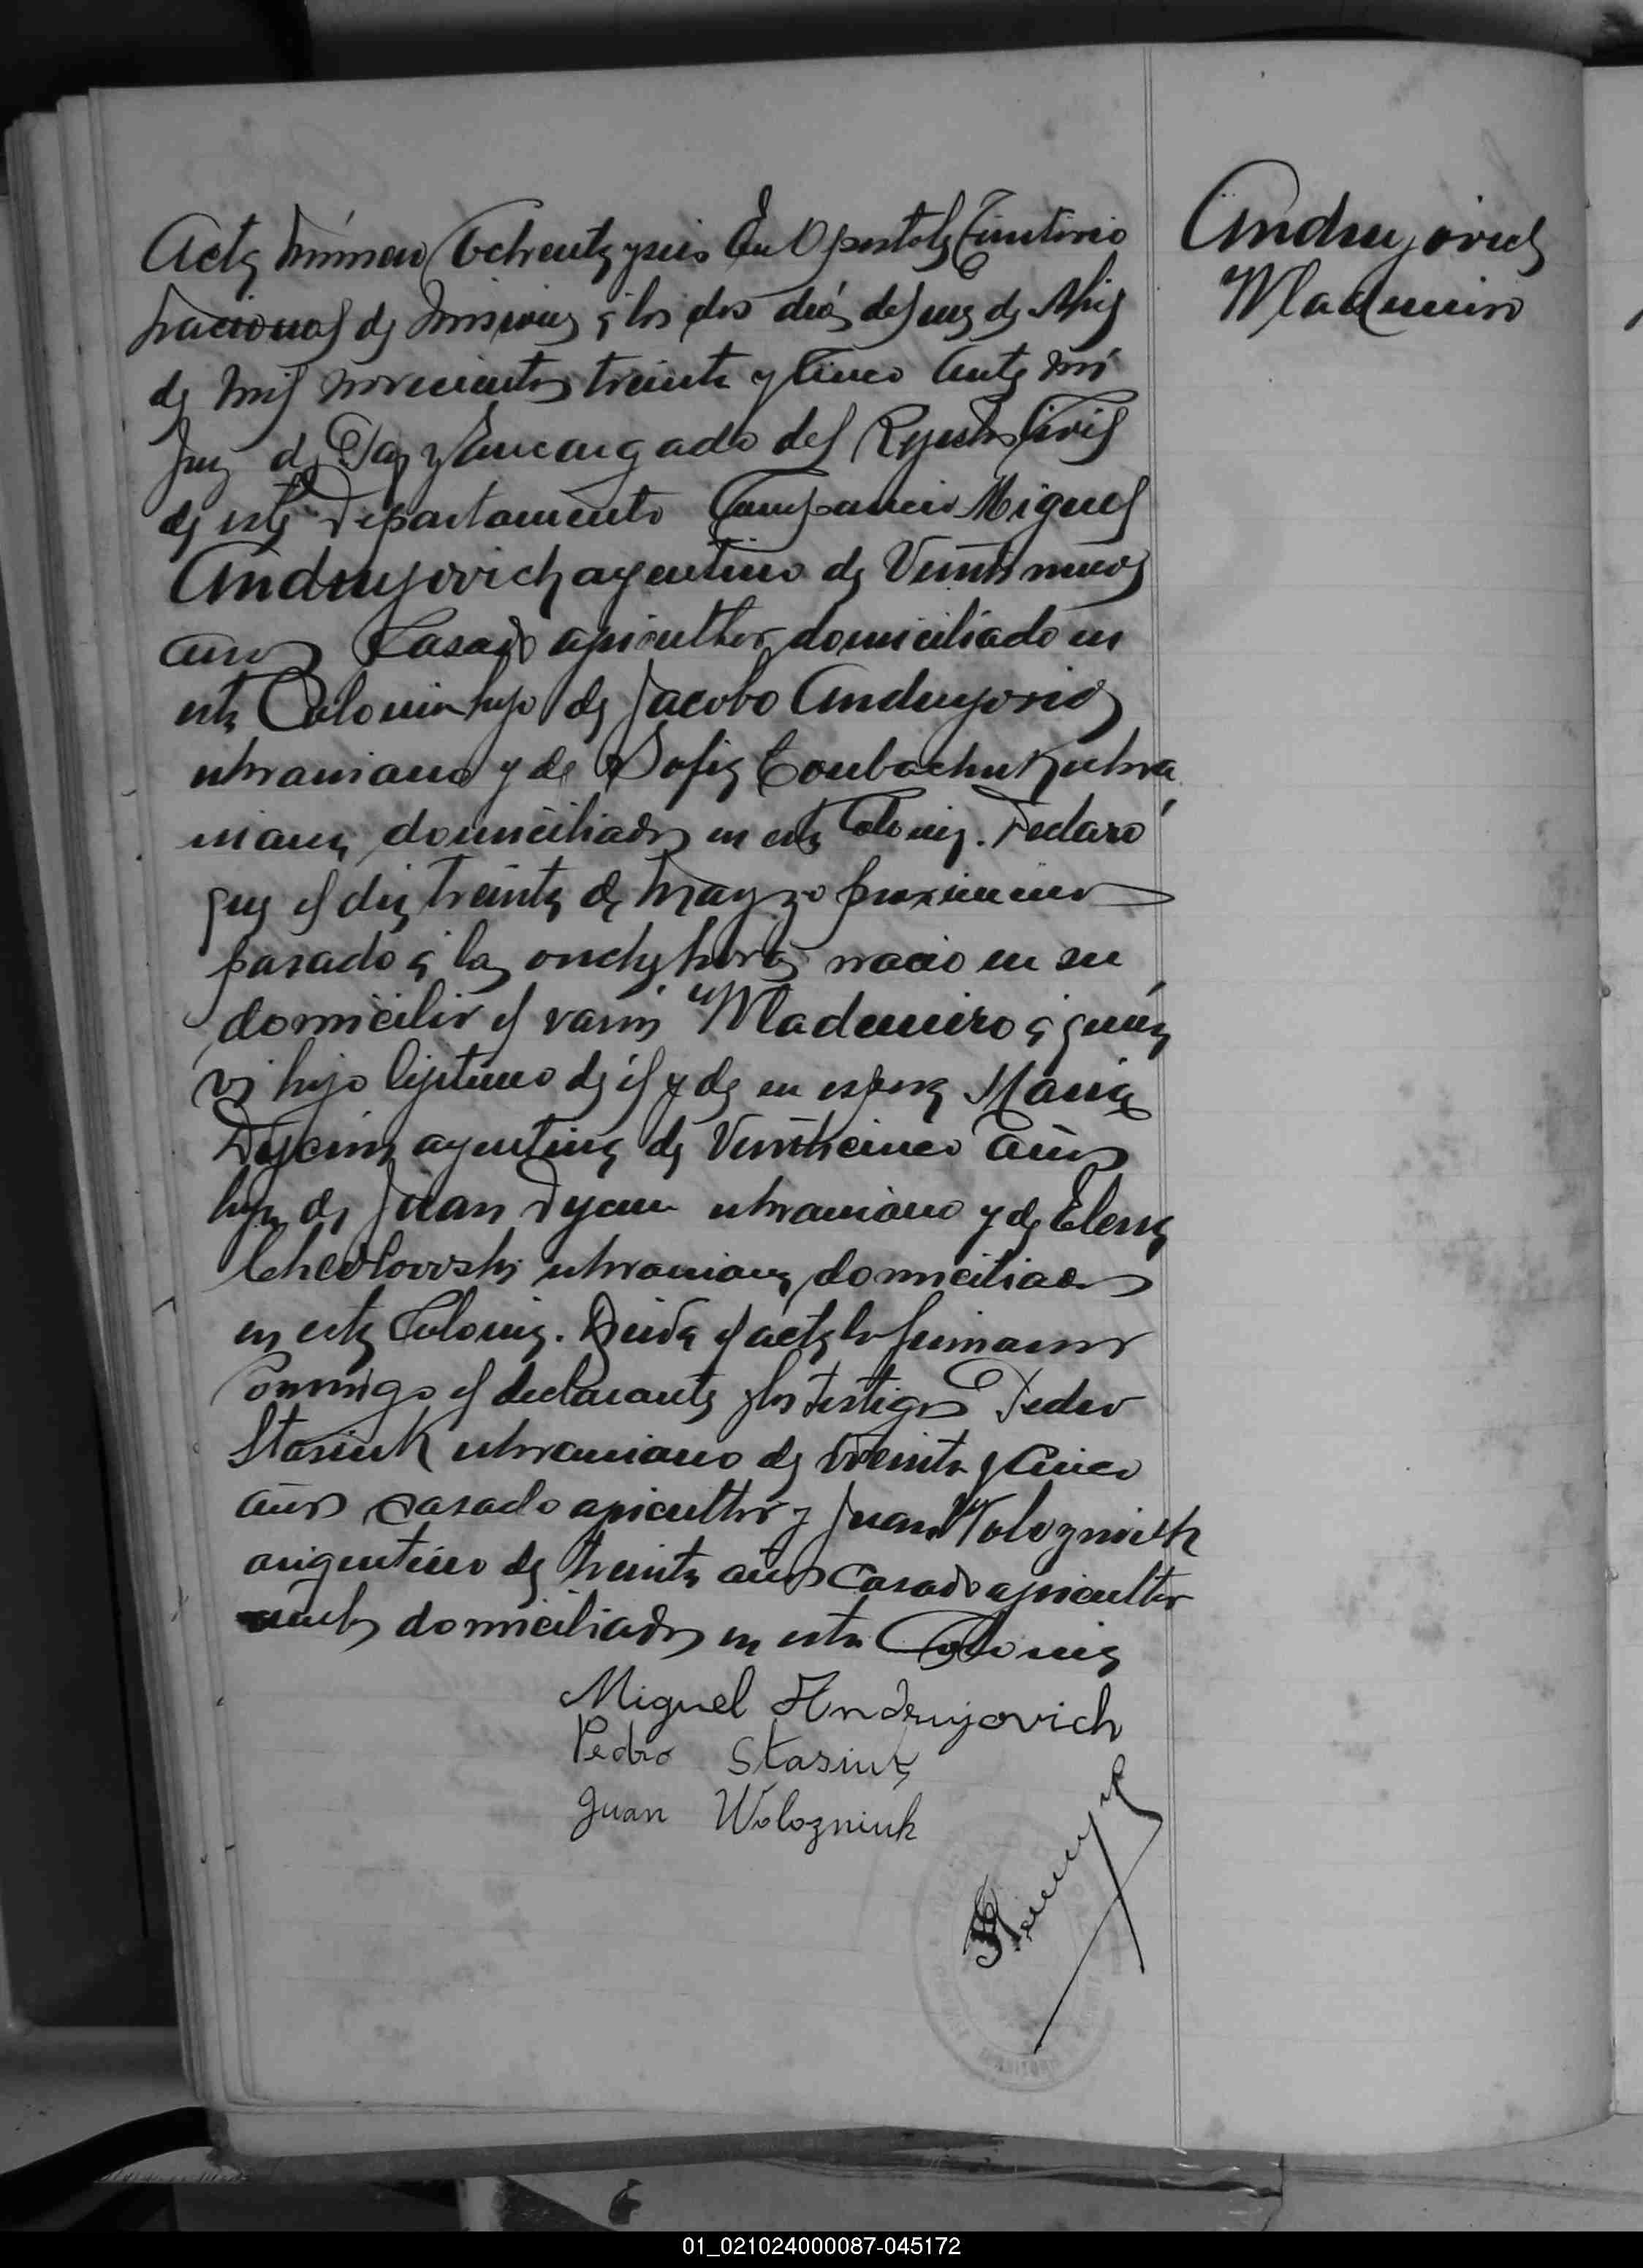 Andrujovich
Wlademiro
Acta número Ochenta y seis En Apostoles Territorio
Nacional de Misiones a los dos dias del mes de Abril
de mil novecientos treinta y cinco Ante mi
Juez de Paz y Encargado del Registro Civil
de este Departamento Compareció Miguel
Andrujovich argentino de Veintinueve
años Casado agricultor domiciliado en
esta Colonia hijo de Jacobo Andrujovich
ukraniano y de Sofia ukra
niana domiciliados en esta Colonia. Declaró
que el dia treinta de Marzo proximino
pasado a las once horas nacio en su
domicilio el varon Wlademiro a quien
vi hijo lejitimo de él y de su esposa Maria
argentina de Veinticinco años
hija de Juan ukraniano y de Elena
ukraniana domiciliados
en esta Colonia. Leida el acta la firmaron
conmigo el declarante y los testigos Pedro
Stasiuk ukraniano de treinta y cinco
años casado agricultor y Juan Wolozniuk
argentino de treinta años casado agricultor
ambos domiciliados en esta Colonia
Miguel Andrujovich
Pedro Stasiuk
Juan Wolozniuk
01_021024000087-045172